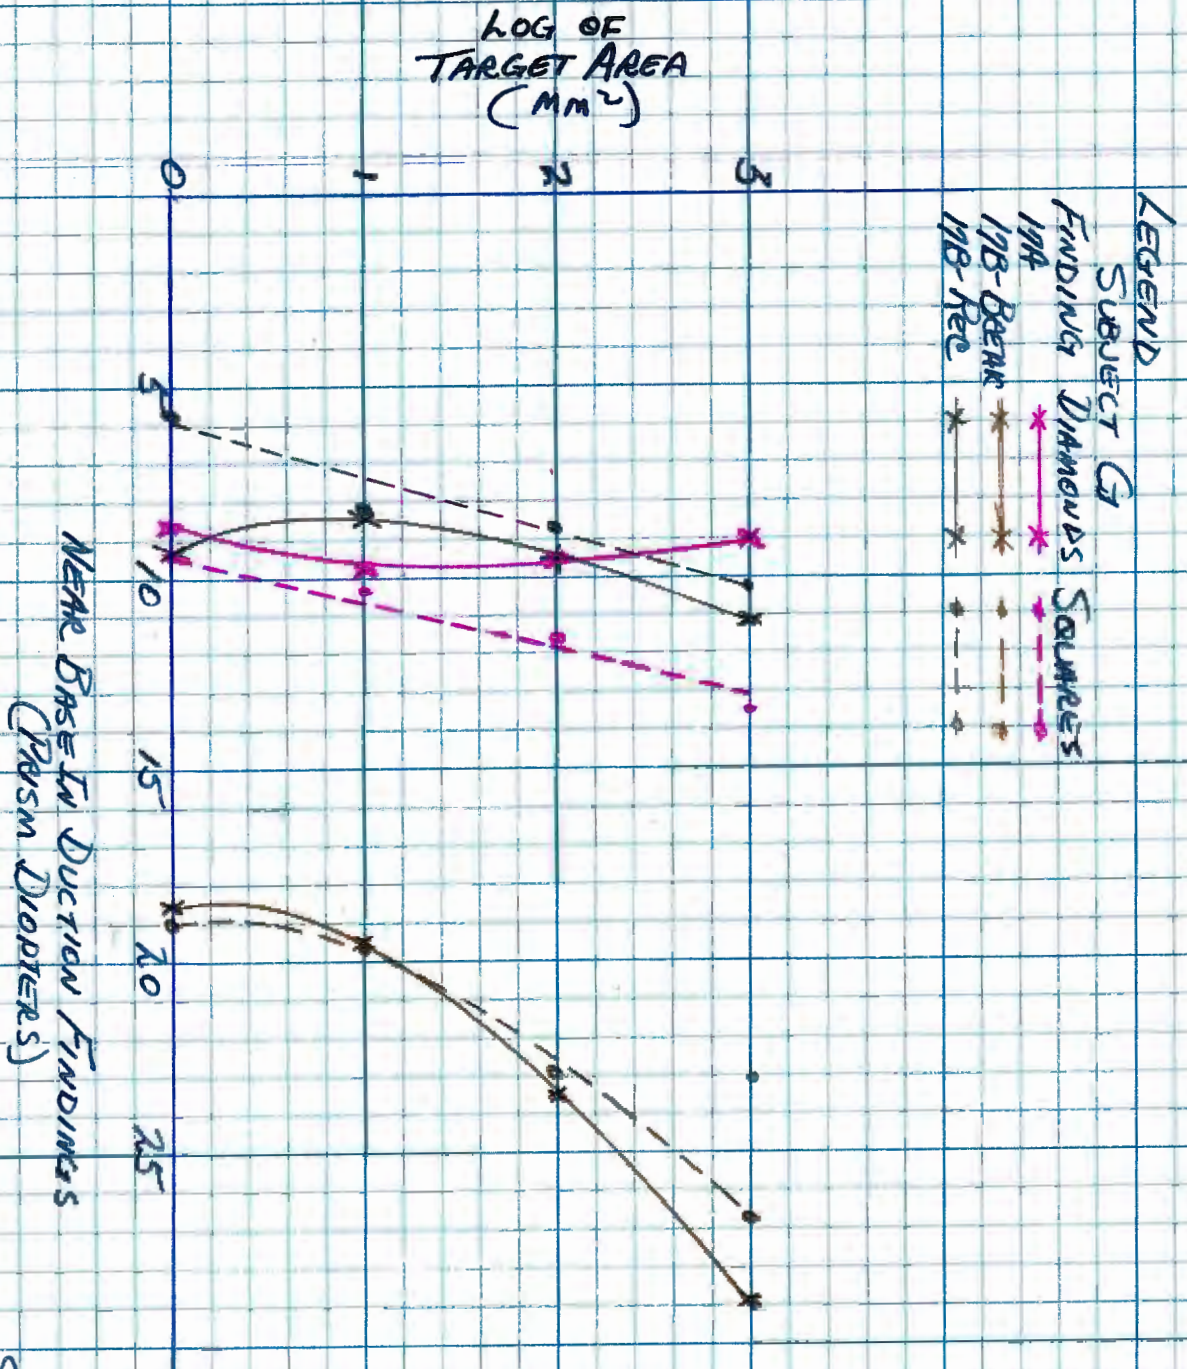 LOG OF
TARGET AREA
(MM²)
0
1
2
3
LEGEND
SUBJECT G
FINDING DIAMONDS SQUARES
17A
17B-BREAK
17B-REC
5
10
15
20
25
NEAR BASE IN DUCTION FINDINGS
(PRISM DIOPTERS)